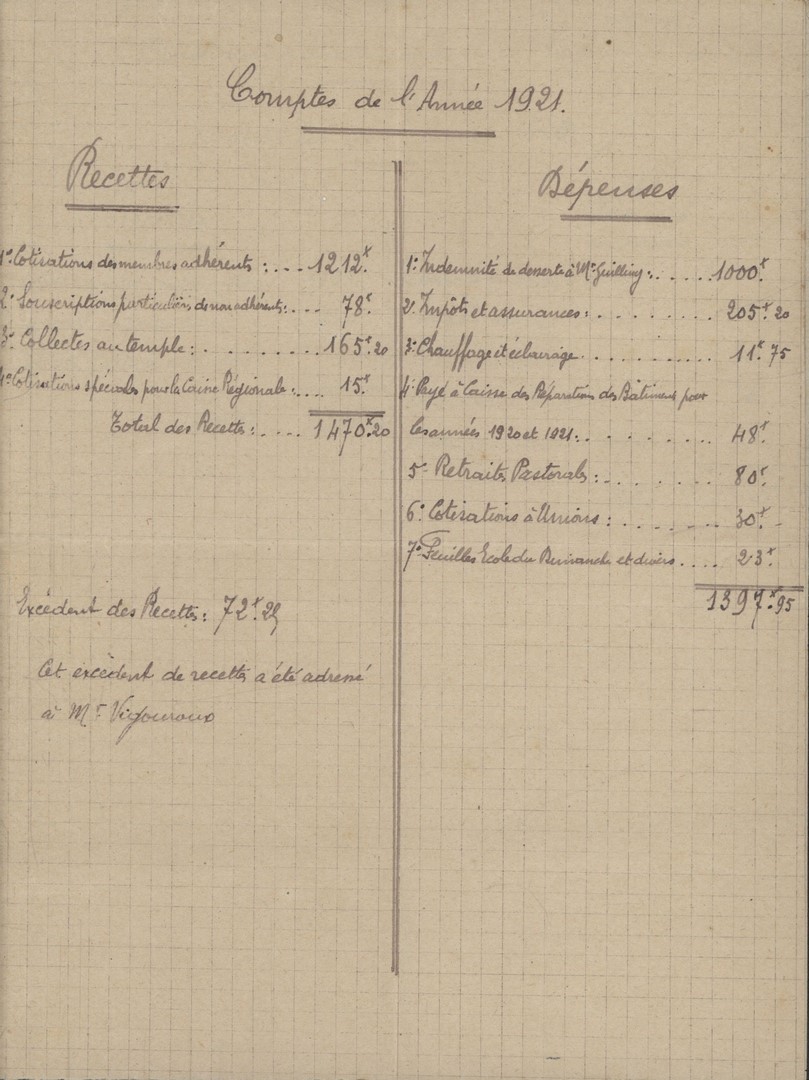 Comptes de l'Année 1921.
Recettes
1º Cotisations des membres adhérents : .... 1212f.
2º Souscriptions particulières de non adhérents : .... 78f.
3º Collectes au temple : ........ 165f.20
4º Cotisations spéciales pour la Caisse Régionale : .... 15f.
Total des Recettes : .... 1470f.20
Excédent des Recettes : 72f.25
Cet excédent de recettes a été adressé
à Mr Vigouroux
Dépenses
1º Indemnité de desserte à Mr : ..... 1000f.
2º Impôts et assurances : ......... 205f.20
3º Chauffage et éclairage ......... 11f.75
4º Payé à Caisse des Réparations des Bâtiments pour
les années 1920 et 1921 : ........ 48f.
5º Retraites Pastorales : ....... 80f.
6º Cotisations à Unions : ....... 30f.
7º Feuilles Ecole du Dimanche et divers .... 23f.
1397f.95